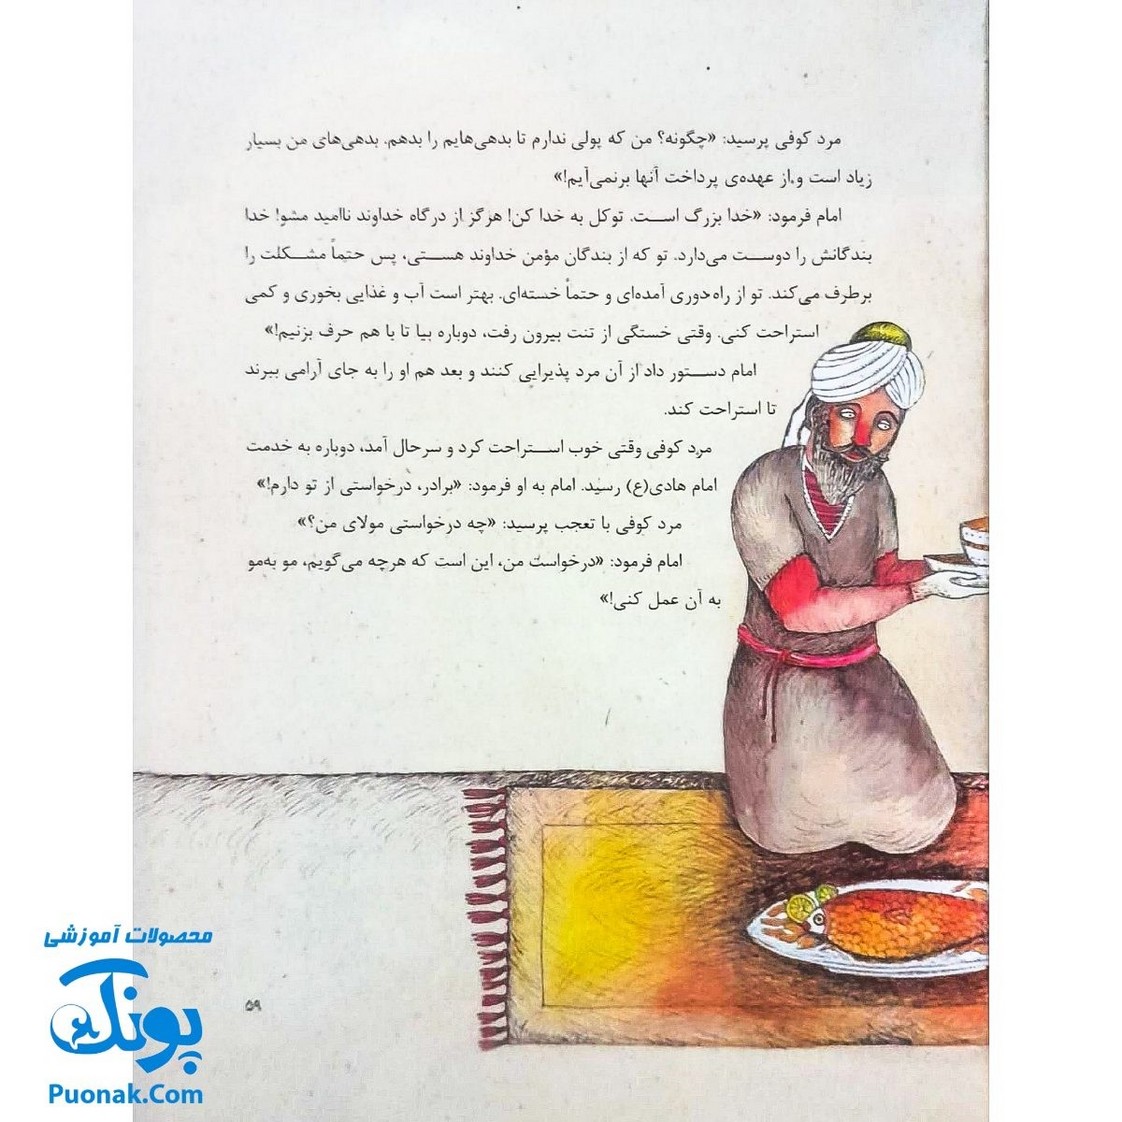 مرد کوفی پرسید: «چگونه؟ من که پولی ندارم تا بدهی‌هایم را بدهم. بدهی‌های من بسیار
زیاد است و از عهده‌ی پرداخت آنها برنمی‌آیم!»
امام فرمود: «خدا بزرگ است. توکل به خدا کن! هرگز از درگاه خداوند ناامید مشو! خدا
بندگانش را دوست می‌دارد. تو که از بندگان مؤمن خداوند هستی، پس حتماً مشکلت را
برطرف می‌کند. تو از راه دوری آمده‌ای و حتماً خسته‌ای. بهتر است آب و غذایی بخوری و کمی
استراحت کنی. وقتی خستگی از تنت بیرون رفت، دوباره بیا تا با هم حرف بزنیم!»
امام دستور داد از آن مرد پذیرایی کنند و بعد هم او را به جای آرامی ببرند
تا استراحت کند.
مرد کوفی وقتی خوب استراحت کرد و سرحال آمد، دوباره به خدمت
امام هادی(ع) رسید. امام به او فرمود: «برادر، درخواستی از تو دارم!»
مرد کوفی با تعجب پرسید: «چه درخواستی مولای من؟»
امام فرمود: «درخواست من، این است که هرچه می‌گویم، مو به‌مو
به آن عمل کنی!»
۵۹
محصولات آموزشی
پونک
Puonak.Com